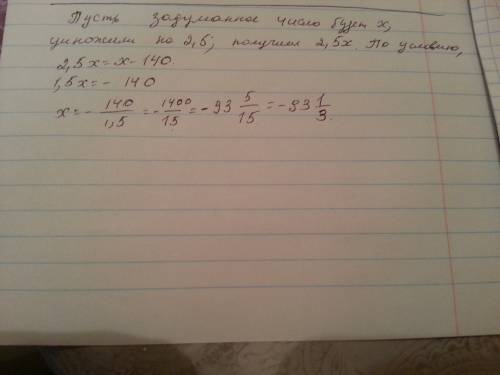 Пусть задуманное число будет x,
умножили на 2,5; получим 2,5x. По условию,
2,5x = x - 140.
1,5x = - 140
x = - 140/1,5 = - 1400/15 = - 93 5/15 = - 93 1/3.